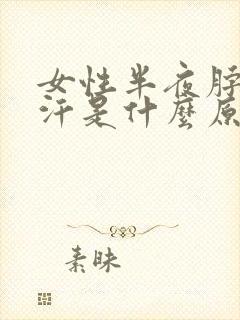 女性半夜脖
汗是什麼原
素昧